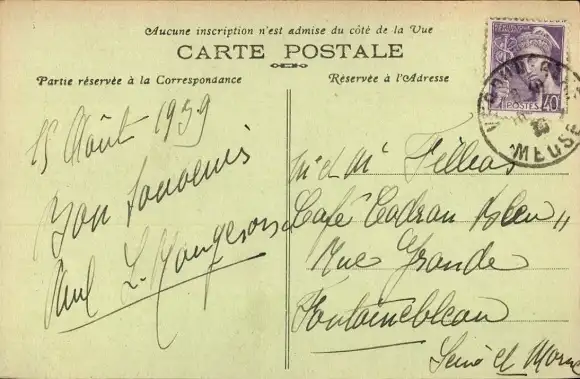 Aucune inscription n'est admise du côté de la Vue
CARTE POSTALE
Partie réservée à la Correspondance
Réservée à l'Adresse
POSTES
40
MEUSE
15 Août 1939
Bon Souvenir
Paul
Mr et Me Fillias
Café Cadran Bleu
Rue Grande
Fontainebleau
Seine et Marne